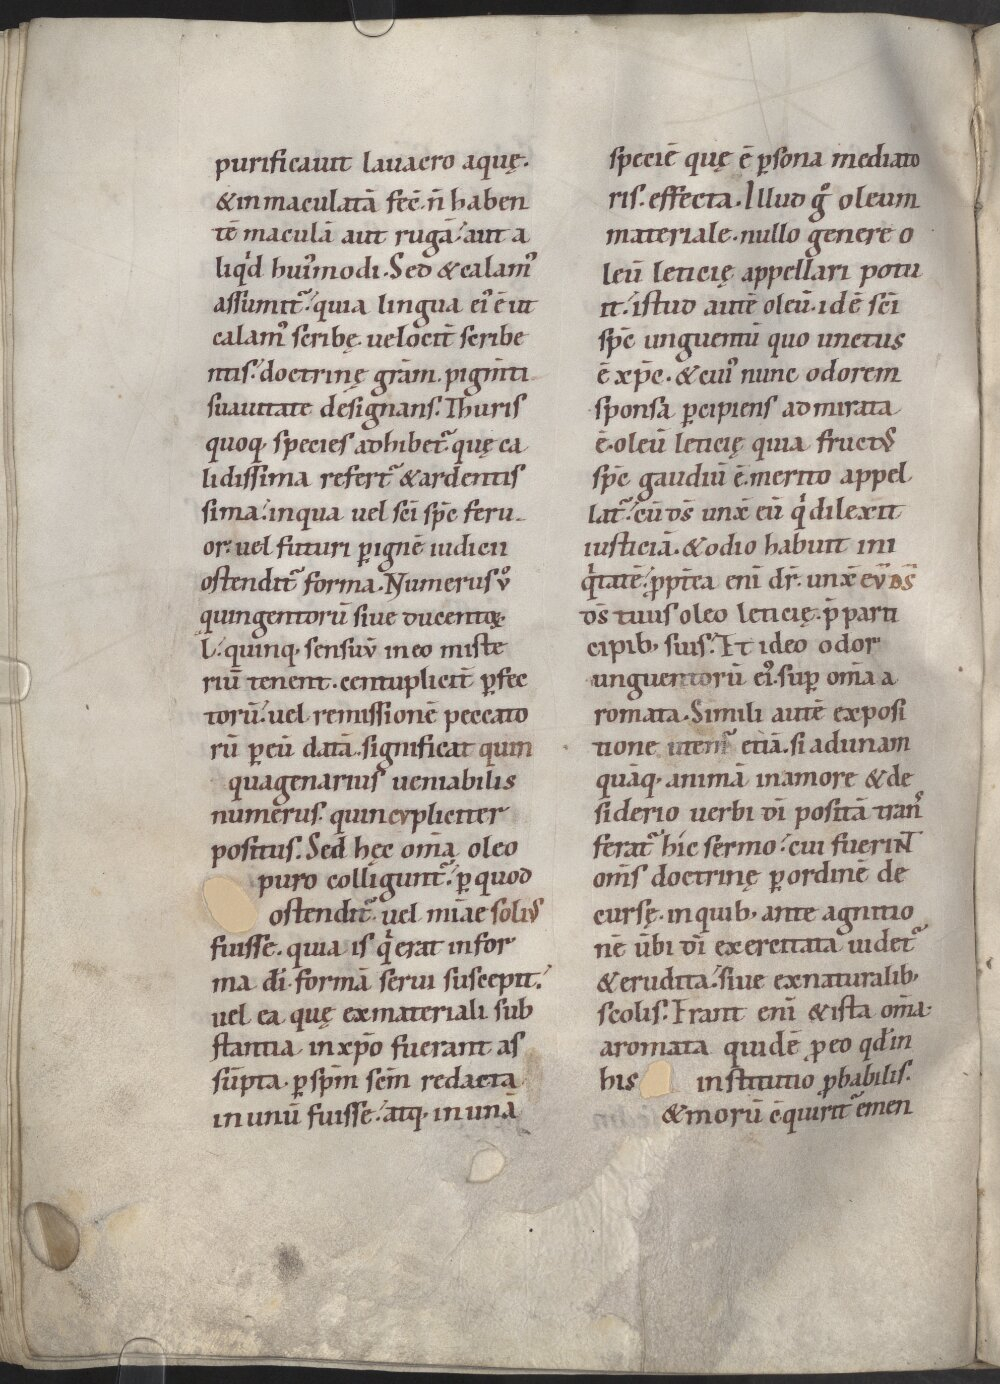 purificauit lauacro aquę.
& inmaculatā fec̄. n̄ haben
tē maculā aut rugā. aut a
liqͥd huiꝰmodi. Sed & calamꝰ
assumitᷣ. quia lingua eiꝰ ē ut
calamꝰ scribę. uelocit̄ scribe
ntis. doctrinę grām. pigm̄ti
suauitate designans. Thuris
quoq; species adhibetᷣ. quę ca
lidissima refertᷣ & ardentis
sima. inqua uel sc̄i sp̄c feru
or. uel futuri ꝑignē iudicii
ostenditᷣ forma. Numerus ů
quingentorū siue ducentoꝝ.
L. quinq; sensuū in eo miste
riū tenent. centuplicit̄ ꝑfec
torū. uel remissionē peccato
rū ꝑ eū datā. significat quin
quagenarius ueniabilis
numerus. quincupliciter
positus. Sed hęc om̄ia oleo
puro colliguntᷣ. ꝑ quod
ostenditᷣ. uel mīae soliꝰ
fuisse. quia is qͥ erat in for
ma dī. formā serui suscepit.
uel ea quę ex materiali sub
stantia in xp̄o fuerant as
sūpta. ꝑ sp̄m sc̄m redacta
in unū fuisse. atq; in unā
speciē quę ē ꝑsona mediato
ris. effecta. Illud gͦ oleum
materiale. nullo genere o
leū leticię appellari potu
it. istud autē oleū. id ē sc̄i
sp̄c unguentū quo unctus
ē xp̄c. & cuiꝰ nunc odorem
sponsa ꝑcipiens admirata
ē. oleū leticię quia fructꝰ
sp̄c gaudiū ē. merito appel
latᷣ. cū ds̄ unx̄ eū qͥ dilexit
iusticiā. & odio habuit ini
qͥtatē. ꝓpt̄ea eni dr̄. unx̄ eū ds̄
ds̄ tuus oleo leticię. p̄ parti
cipib; suis. Et ideo odor
unguentorū eiꝰ. suꝑ om̄ia a
romata. Simili autē exposi
tione utemꝰ etiā. si ad unam
quāq; animā in amore & de
siderio uerbi dī positā trans
feratᷣ hic sermo. cui fuerint
om̄s doctrinę ꝑ ordinē de
cursę. in quib; ante agnitio
nē ūbi dī exercitata uidetᷣ
& erudita. siue ex naturalib;
scolis. Erant eni & ista om̄ia
aromata quidē ꝓ eo qd̄ in
his institutio ꝓbabilis.
& morū ēquiritᷣ emen